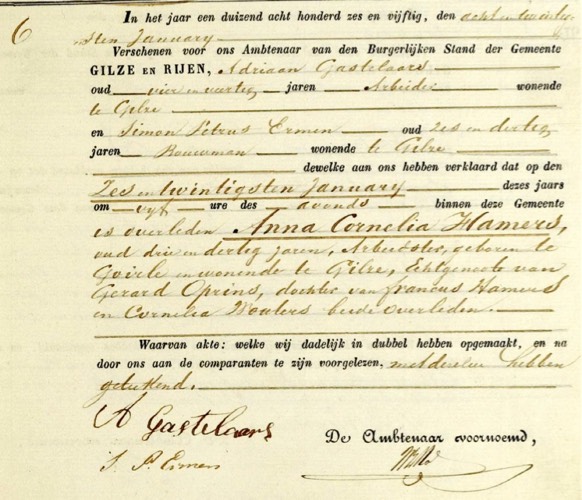 6
In het jaar een duizend acht honderd zes en vijftig, den acht en twintig-
sten January
Verschenen voor ons Ambtenaar van den Burgerlijken Stand der Gemeente
GILZE EN RIJEN, Adriaan Gastelaars
oud vier en veertig jaren Arbeider wonende
te Gilze
en Simon Petrus Ermen oud zes en dertig
jaren Bouwman wonende te Gilze
dewelke aan ons hebben verklaard dat op den
Zes en twintigsten January dezes jaars
om vyf ure des avonds binnen deze Gemeente
is overleden Anna Cornelia Hamers,
oud drie en dertig jaren, Arbeidster, geboren te
Goirle en wonende te Gilze, Echtgenoote van
Gerard Oprins, dochter van francus Hamers
en Cornelia Wouters beide overleden.
Waarvan akte: welke wij dadelijk in dubbel hebben opgemaakt, en na
door ons aan de comparanten te zijn voorgelezen, met dezelve hebben
geteekend.
A Gastelaars
De Ambtenaar voornoemd,
S. P. Ermen